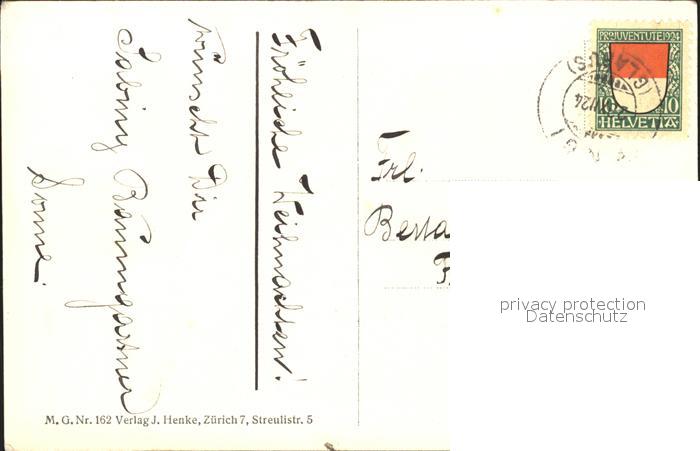 Fröhliche Weihnachten!
wünscht Dir
Sabiny Baumgartner
Sonne.
PRO JUVENTUTE 1924
10 10
HELVETIA
(GLARUS)
Frl.
Berta
privacy protection
Datenschutz
M. G. Nr. 162 Verlag J. Henke, Zürich 7, Streulistr. 5